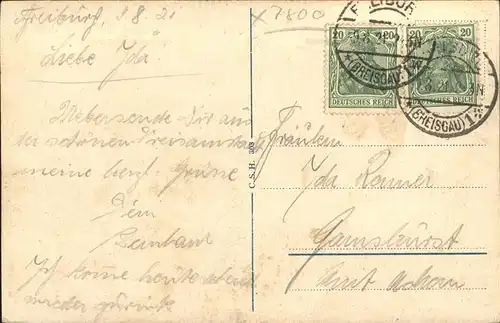 Freiburg, 8.21
x7800
Liebe Ida
Uebersende Dir aus
der schönen Dreisamstadt
meine herzl. Grüsse
Dein
Ich komme heute abend
wieder zurück
C.S.H. 203
20 20
20 20
DEUTSCHES REICH
DEUTSCHES REICH
(BREISGAU)
(BREISGAU) 1
Fräulein
Ida
Gamshurst
Amt Achern